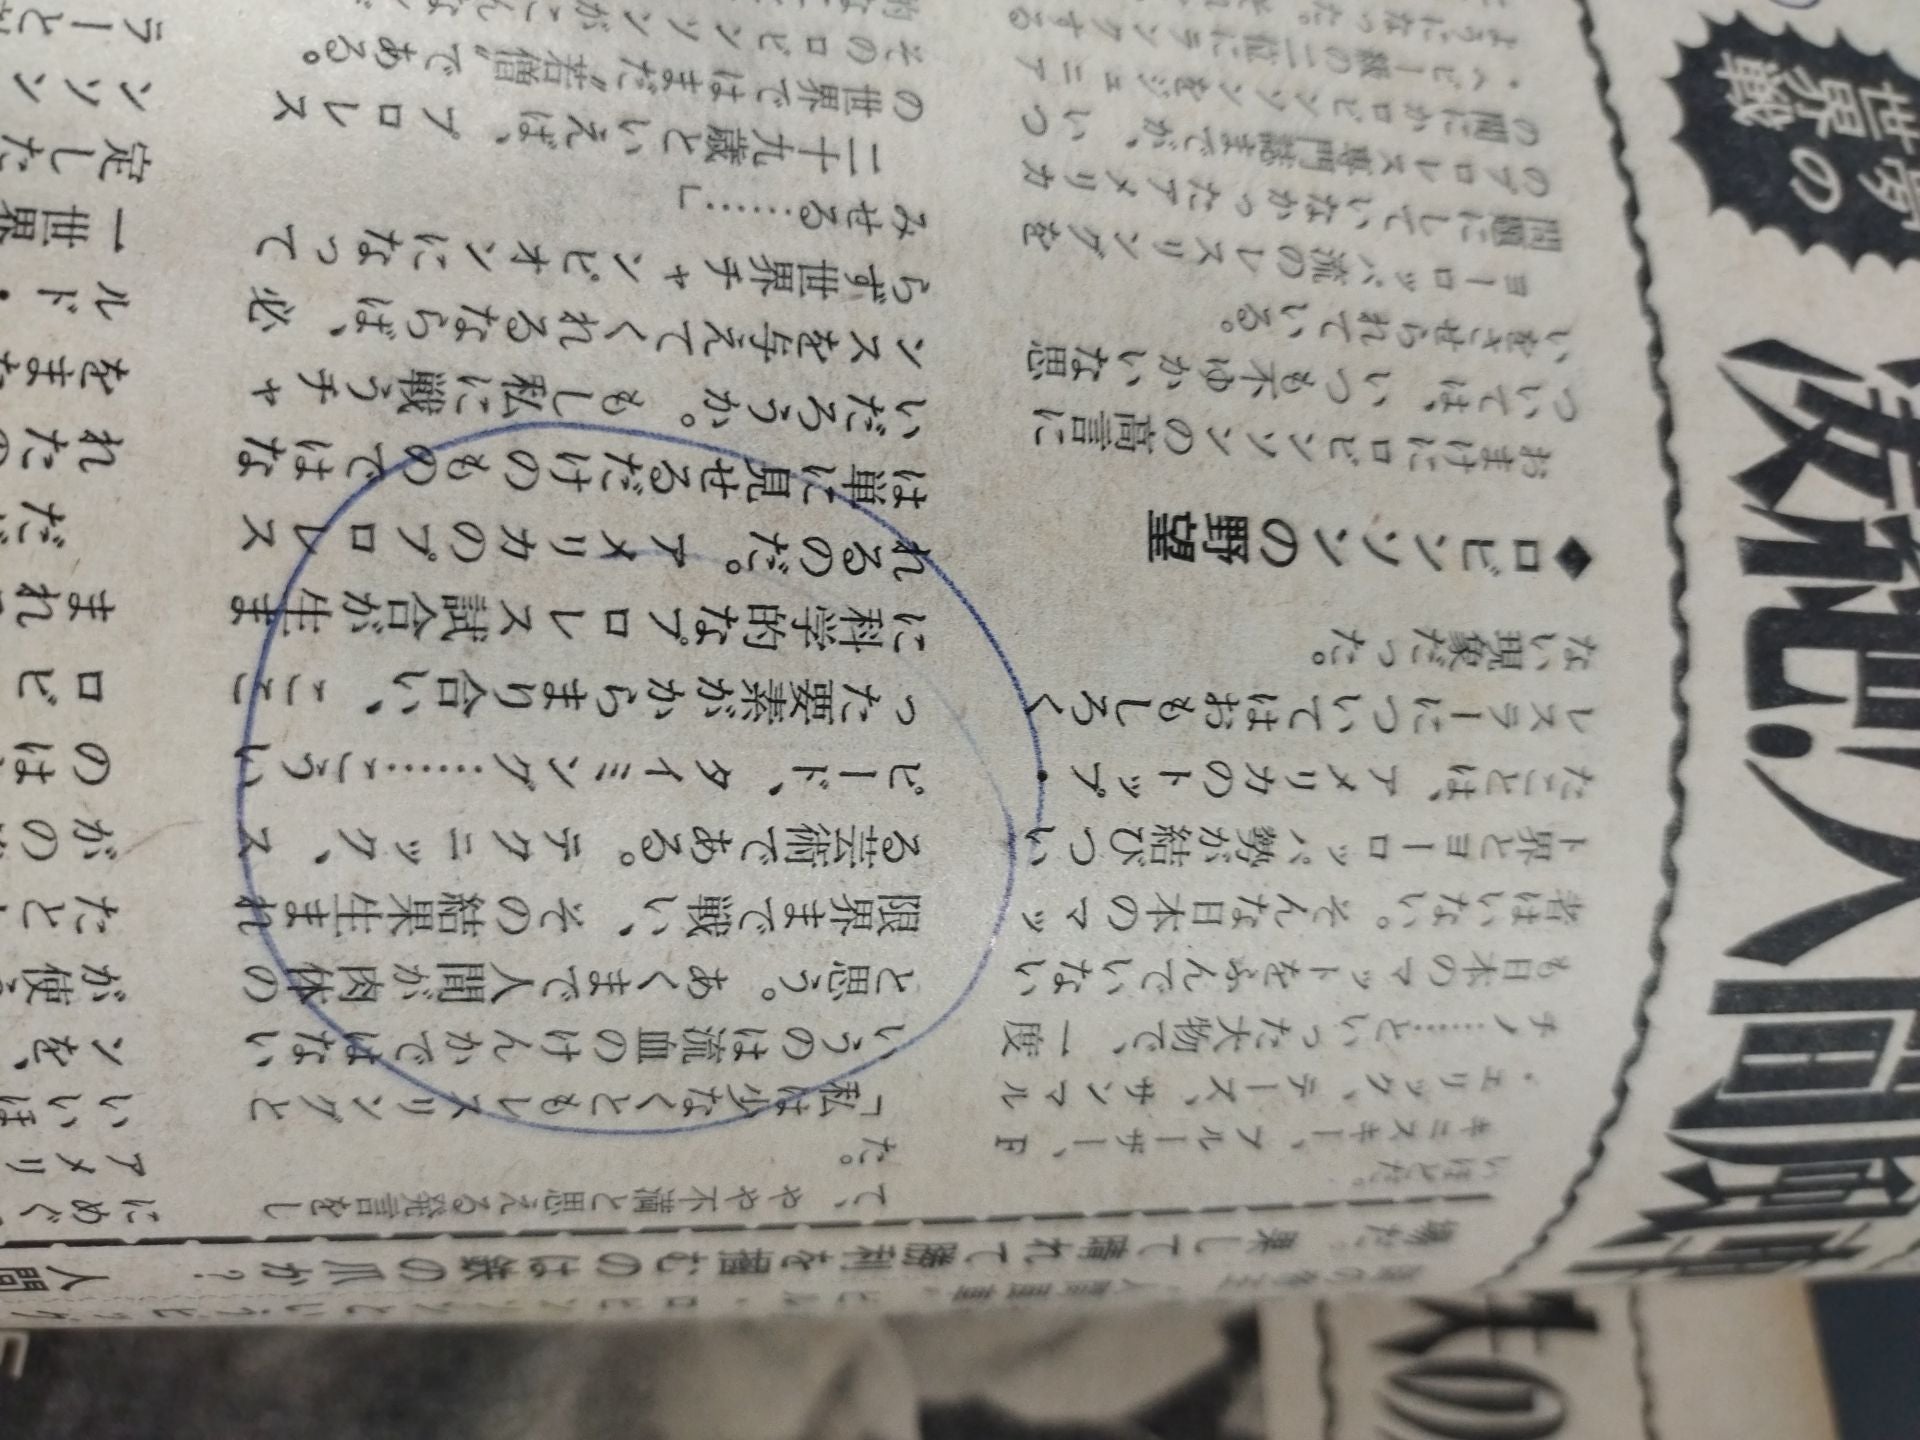 場だ。果して晴れて勝利を掴むのは鉄の爪か? 人間
いほどだ。
キニスキー、ブルーザー、F
・エリック、テーズ、サンマル
チノ……といった大物で、一度
も日本のマットをふんでいない
者はいない。そんな日本のマッ
ト界とヨーロッパ勢が結びつい
たことは、アメリカのトップ・
レスラーについてはおもしろく
ない現象だった。
◆ロビンソンの野望
おまけにロビンソンの高言に
ついては、いつも不ゆかいな思
いをさせられている。
ヨーロッパ流のレスリングを
問題にしていなかったアメリカ
のプロレス専門誌までが、いつ
の間にかロビンソンをジュニア
・ヘビー級の二位にランクする
ようになった。
て、やや不満と思える発言をし
た。
「私は少なくともレスリングと
いうのは流血のけんかではない
と思う。あくまで人間が肉体の
限界まで戦い、その結果生まれ
る芸術である。テクニック、ス
ピード、タイミング……こうい
った要素がからまり合い、ここ
に科学的なプロレス試合が生ま
れるのだ。アメリカのプロレス
は単に見せるだけのものではな
いだろうか。もし私に戦うチャ
ンスを与えてくれるならば、必
らず世界チャンピオンになって
みせる……」
二十九歳といえば、プロレス
の世界ではまだ“若僧”である。
そのロビンソンがこんな
にめぐ
アメリ
いいほ
ンを、
が使
たと
がの
のは
ロビ
まれ
だ
れたの
をまた
ルド・
一世界
定した
ンソン
ラーと
世界の
人間